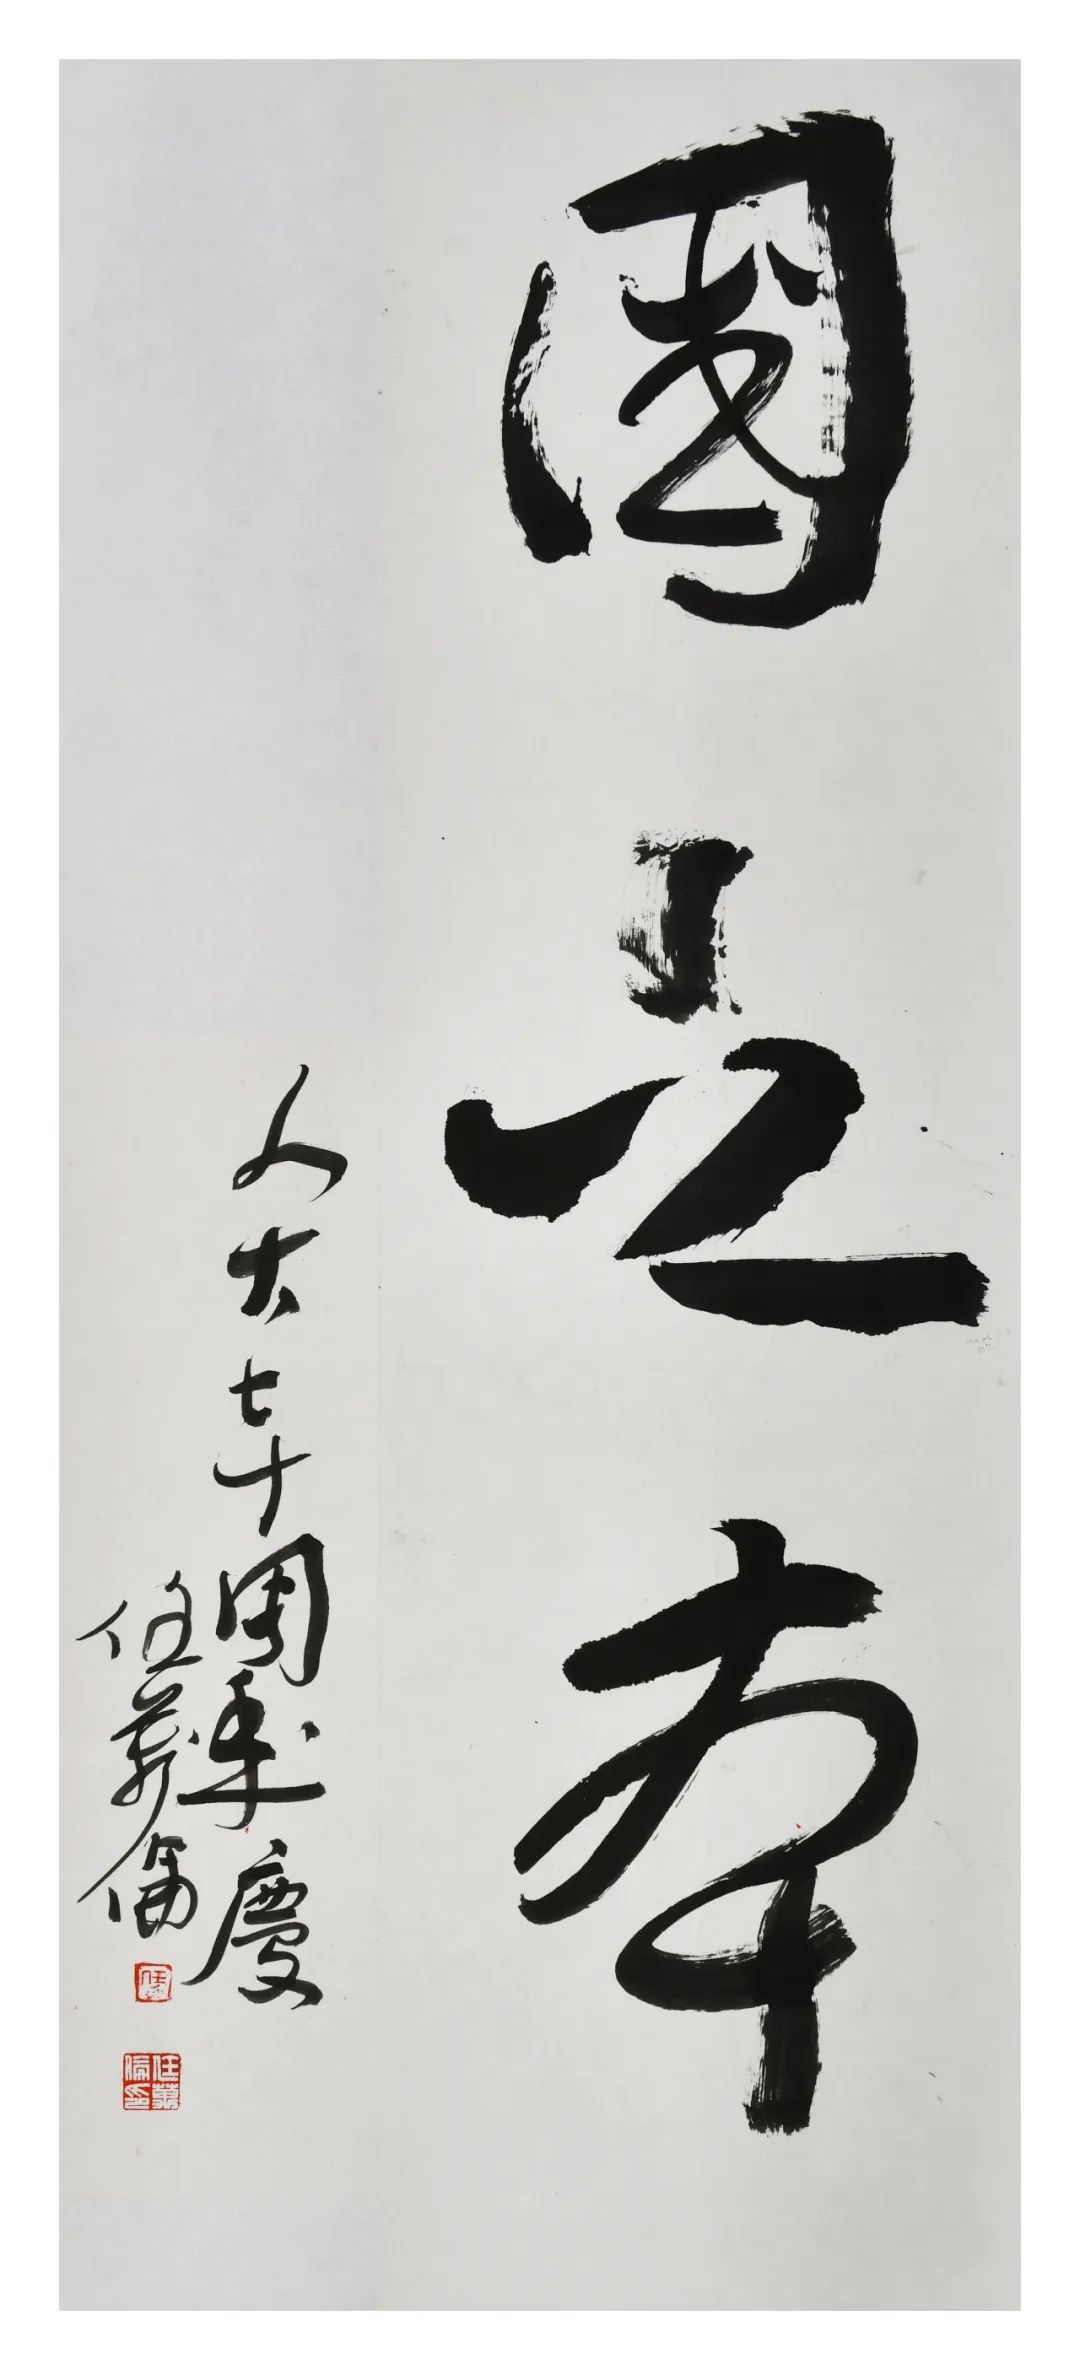 國之本
人大七十周年慶
任萬倫
任萬倫印